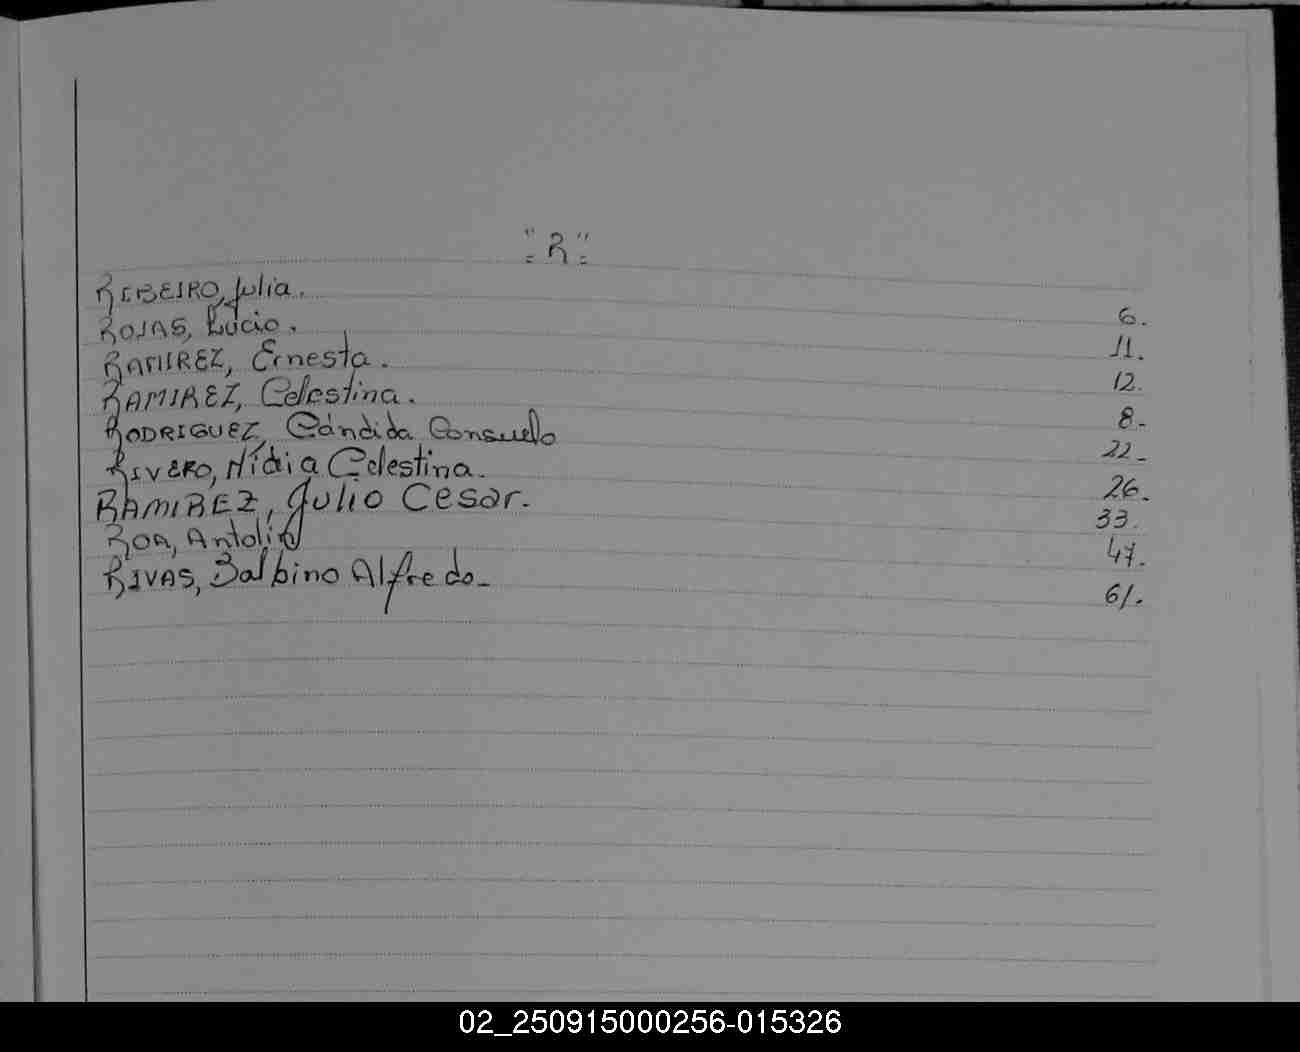 "R"
RIBEIRO, Julia. 6.
ROJAS, Lucio. 11.
RAMIREZ, Ernesta. 12.
RAMIREZ, Celestina. 8.
RODRIGUEZ, Cándida Consuelo 22.
RIVERO, Nídia Celestina. 26.
RAMIREZ, Julio Cesar. 33.
ROA, Antolin 47.
RIVAS, Balbino Alfredo. 61.
02_250915000256-015326